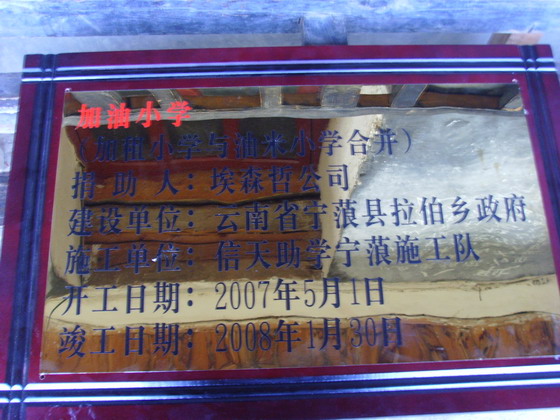 加油小学
（加租小学与油米小学合并）
捐助人：埃森哲公司
建设单位：云南省宁蒗县拉伯乡政府
施工单位：信天助学宁蒗施工队
开工日期：2007年5月1日
竣工日期：2008年1月30日